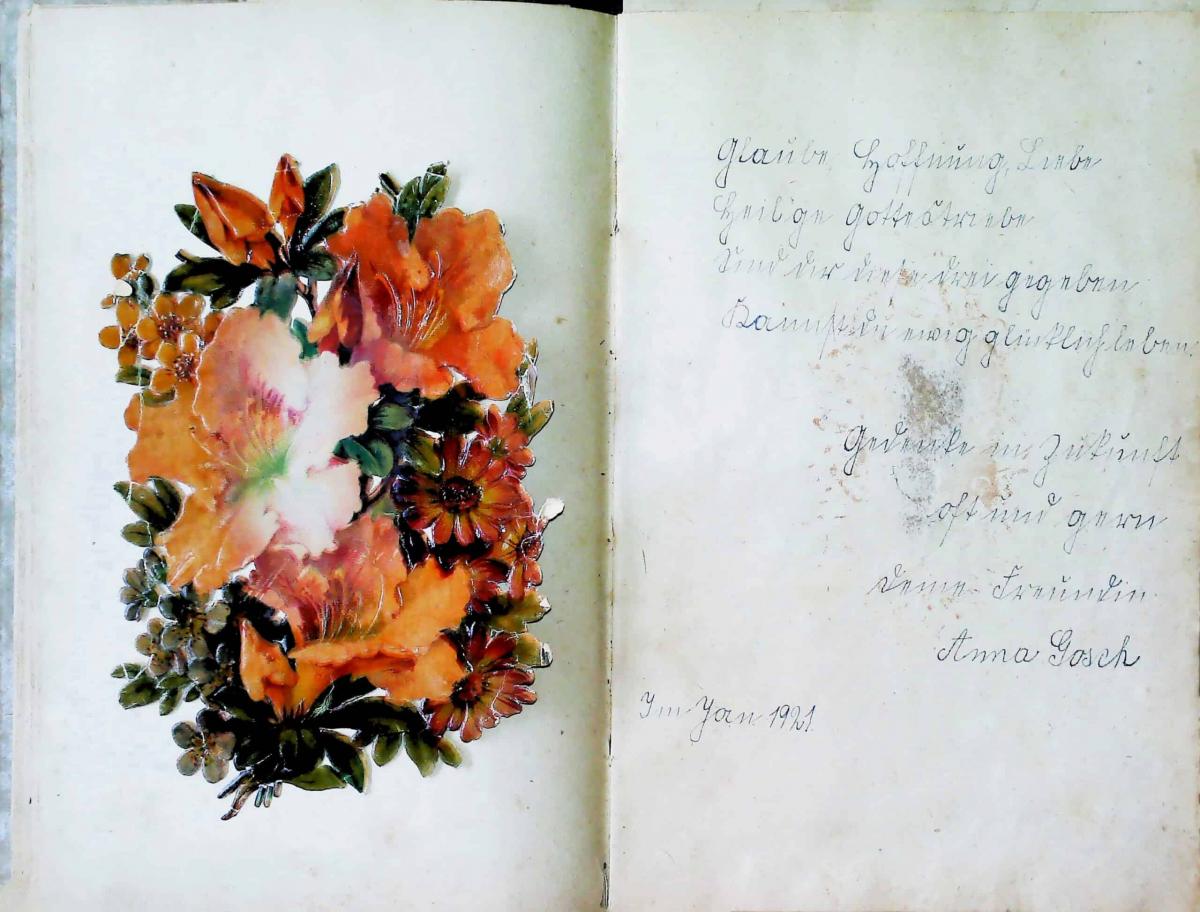 Glaube, Hoffnung, Liebe
Heilige Gottestriebe
Sind dir diese drei gegeben
Kannst du ewig glücklich leben.
Gedenke in Zukunft
oft und gern
deine Freundin
Anna Gosch
Im Jan 1921.